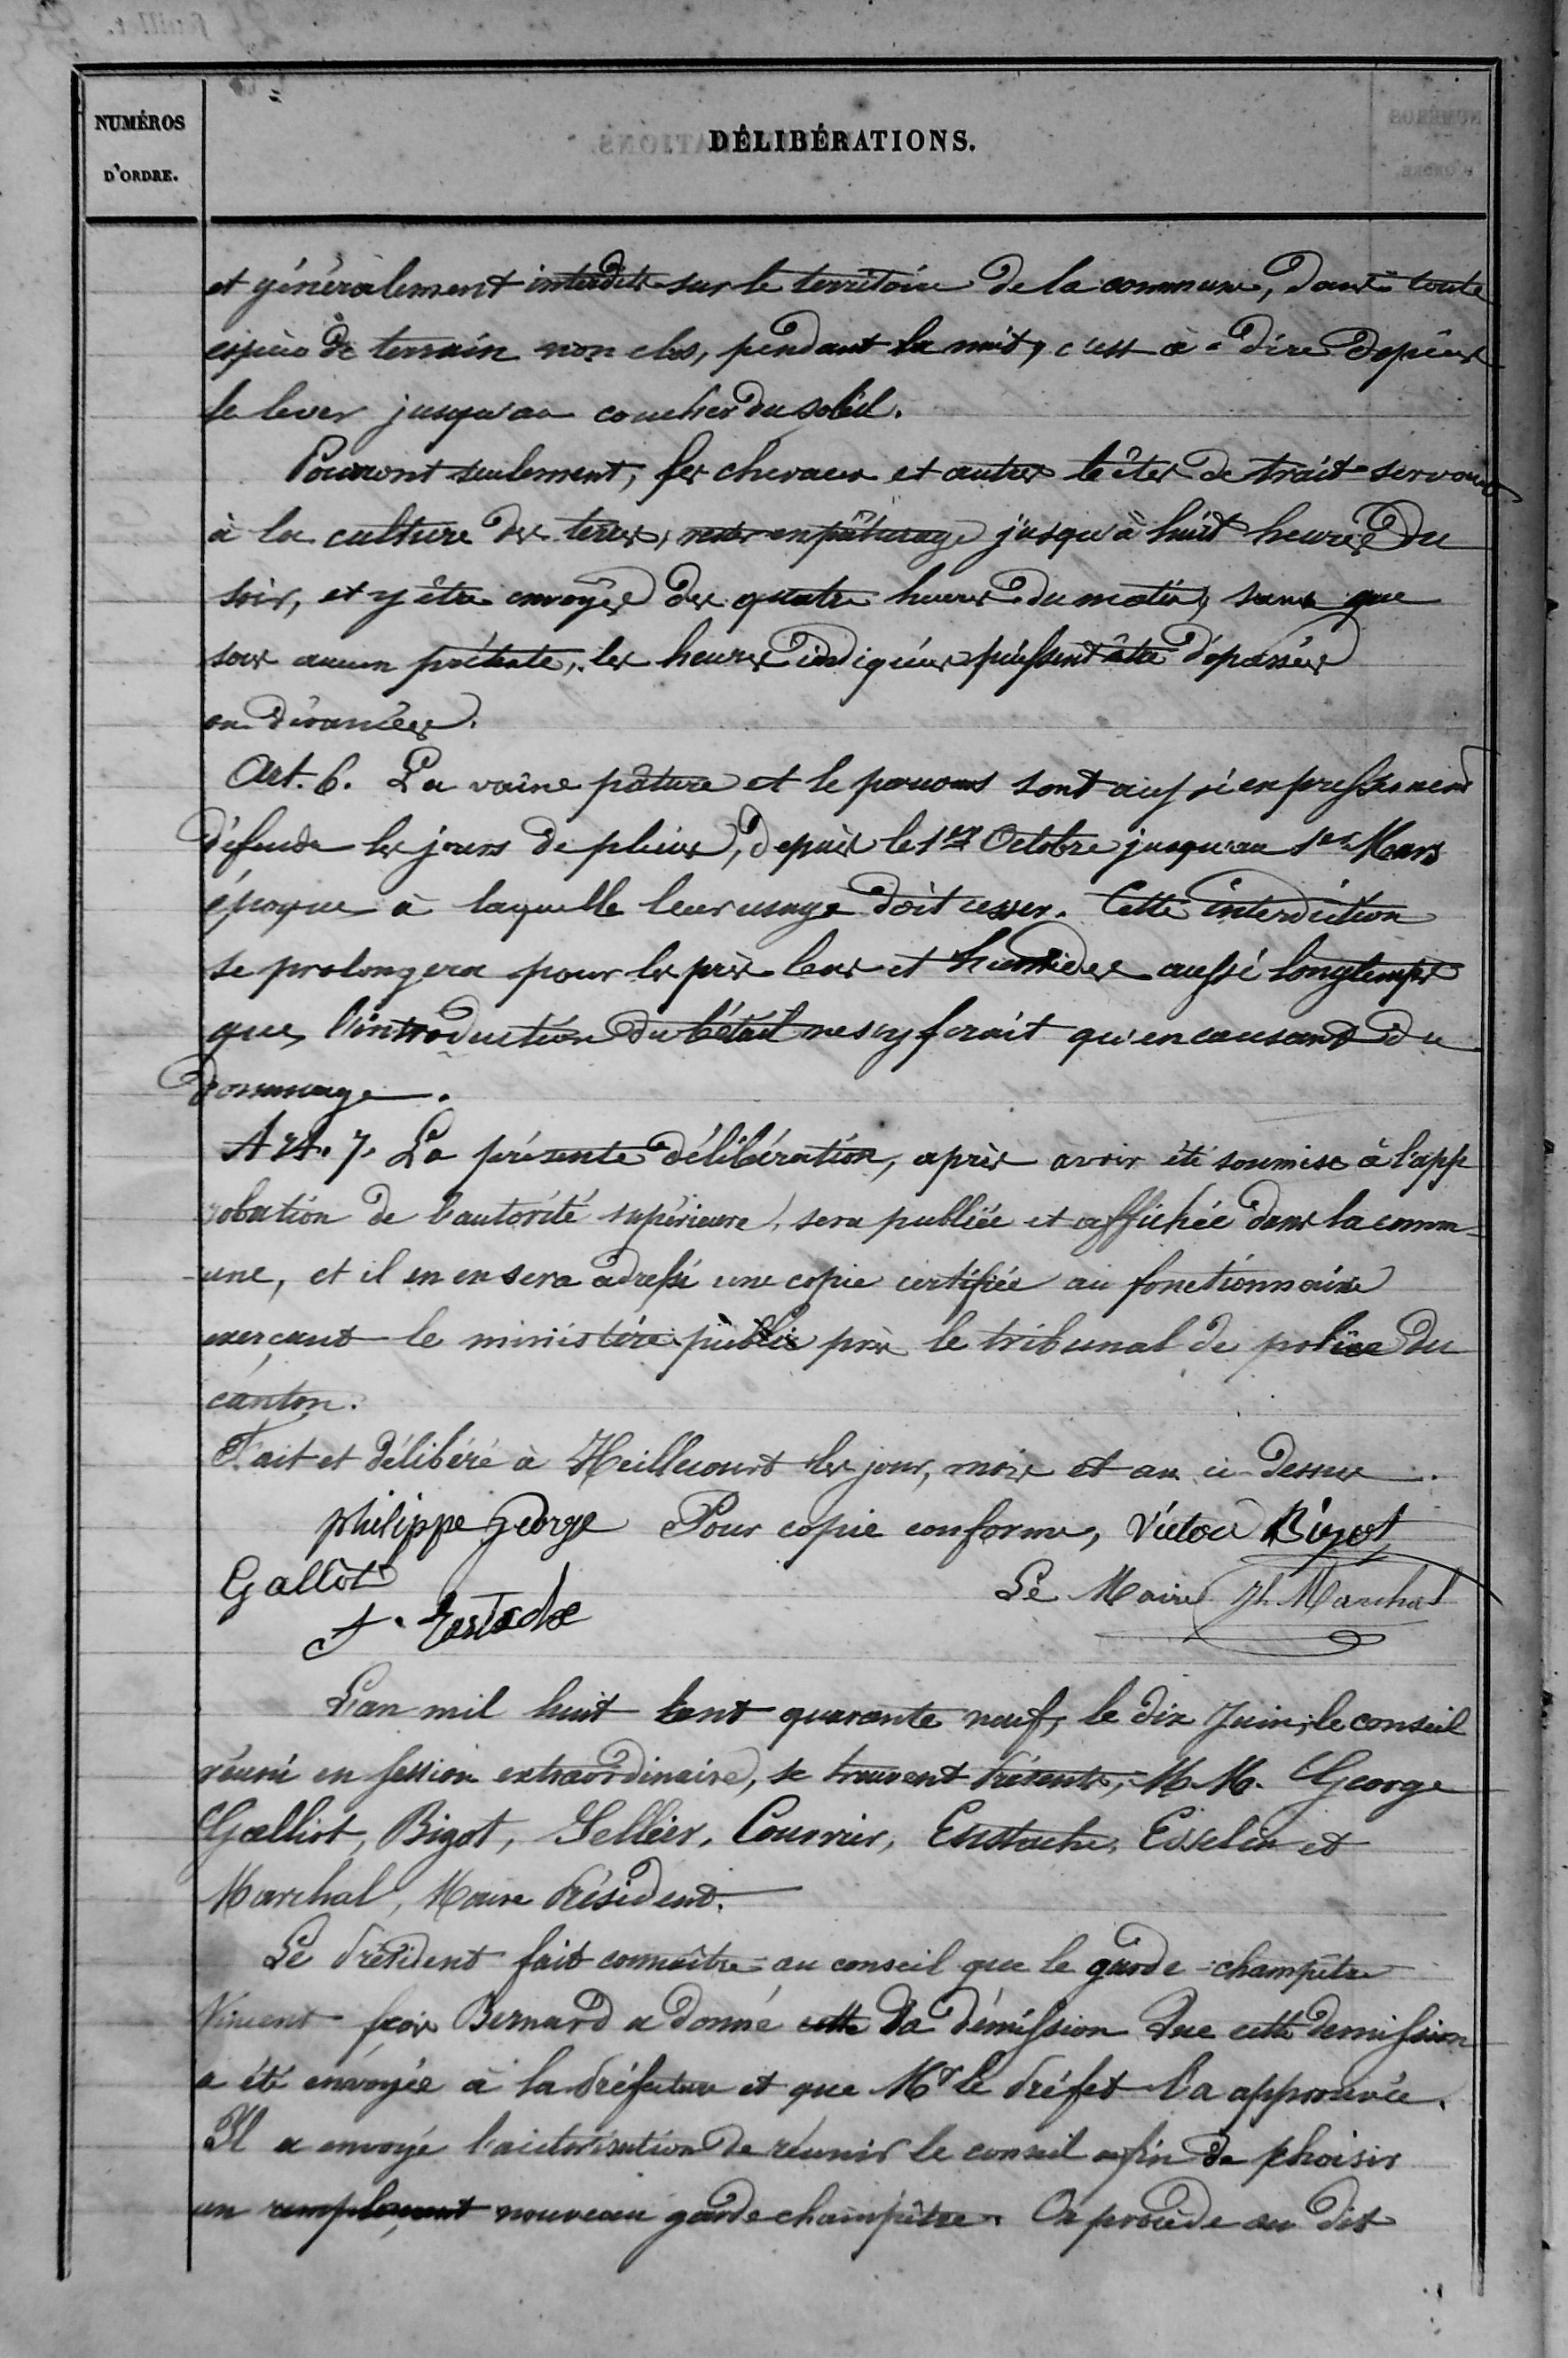 NUMÉROS
D'ORDRE.
DÉLIBÉRATIONS.
et généralement interdits sur le territoire de la commune, dans toute
espèce de terrain non clos, pendant la nuit, c'est à-dire depuis
le lever jusqu'au coucher du soleil.
Pourront seulement, les chevaux et autres bêtes de trait servant
à la culture des terres, rester en pâturage jusqu'à huit heures du
soir, et y être envoyés dès quatre heures du matin, sans que
sous aucun prétexte, les heures indiquées puissent être dépassées
ou devancées.
Art. 6. La vaine pâture et le parcours sont aussi expressément
défendu les jours de pluie, depuis le 1er Octobre jusqu'au 1er Mars
époque à laquelle leur usage doit cesser. Cette interdiction
se prolongera pour les prés bas et humides aussi longtemps
que, l'introduction du bétail ne s'y ferait qu'en causant du
dommage.
Art. 7. La présente délibération, après avoir été soumise à l'app
robation de l'autorité supérieure, sera publiée et affichée dans la comm-
-une, et il en en sera adressé une copie certifiée au fonctionnaire
exerçant le ministère public près le tribunal de police du
canton.
Fait et délibéré à Heillecourt les jour, mois et an ci-dessus.
philippe george Pour copie conforme, Victor Bigot
Gallot
Le Maire Jh. Marchal
Eustache
L'an mil huit cent quarante neuf, le dix Juin, le conseil
réuni en session extraordinaire, se trouvent Présents, M.M. George
Galliot, Bigot, Sellier, Courrier, Eustache, Esselin et
Marchal, Maire Président.
Le Président fait connaître au conseil que le garde-champêtre
Vincent frçois Bernard a donné cette Sa démission Que cette demission
a été envoyée à la Préfecture et que Mr le Préfet l'a approuvée.
Il a envoyé l'autorisation de réunir le conseil afin de choisir
un remplaçant nouveau garde champêtre. On procède au dit